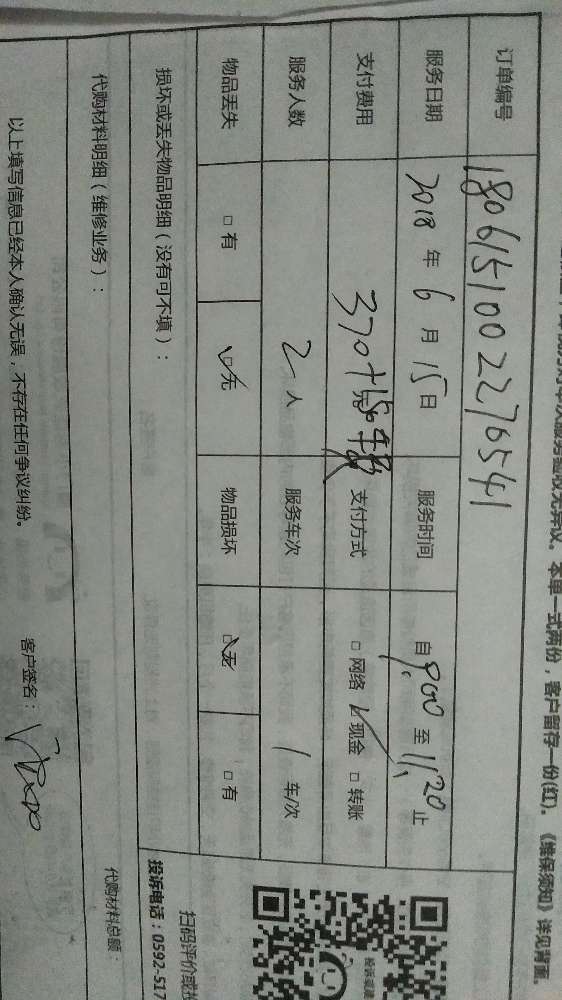 本单一式两份，客户留存一份(红)。《维保须知》详见背面。
订单编号 180615100227 6541
服务日期 2018 年 6 月 15 日 服务时间 自 9:00 至 11:20 止
支付费用 370+150 元 支付方式 □ 网络 ☑ 现金 □ 转账
服务人数 2 人 服务车次 1 车/次
物品丢失 □ 有 ☑ 无 物品损坏 ☑ 无 □ 有
损坏或丢失物品明细（没有可不填）：
扫码评价或投
投诉电话：0592-517
代购材料明细（维修业务）： 代购材料总额：
以上填写信息已经本人确认无误，不存在任何争议纠纷。 客户签名：